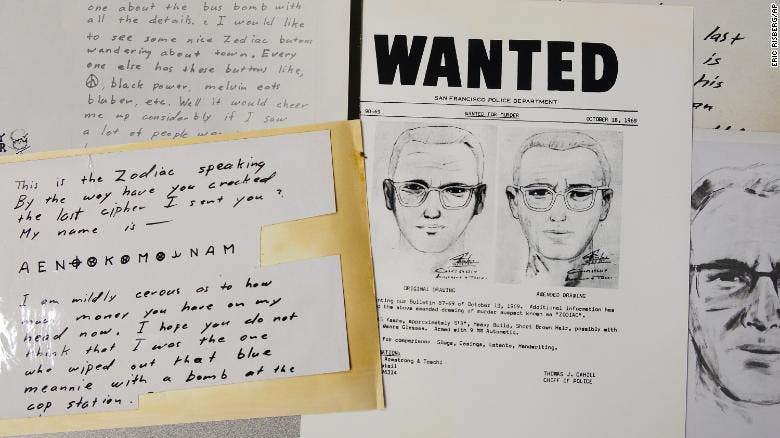 one about the bus bomb with
all the details. I would like
to see some nice Zodiac butons
wandering about town. Every
one else has these buttons like,
☮, black power, melvin eats
bluber, etc. Well it would cheer
me up considerably if I saw
a lot of people
This is the Zodiac speaking
By the way have you cracked
the last cipher I sent you?
My name is —
AEN⌖⊗K⊗M⊗⅃NAM
I am mildly cerous as to how
much money you have on my
head now. I hope you do not
think that I was the one
who wiped out that blue
meannie with a bomb at the
cop station.
WANTED
SAN FRANCISCO POLICE DEPARTMENT
90-69 WANTED FOR MURDER OCTOBER 18, 1969
ORIGINAL DRAWING AMENDED DRAWING
our Bulletin 87-69 of October 13, 1969. Additional information has
the above amended drawing of murder suspect known as "ZODIAC".
Years, approximately 5'8", Heavy Build, Short Brown Hair, possibly with
Wears Glasses. Armed with 9 MM Automatic.
for comparison: Slugs, Casings, Latents, Handwriting.
Armstrong & Toschi
THOMAS J. CAHILL
CHIEF OF POLICE
last
is
his
an
ERIC RISBERG/AP